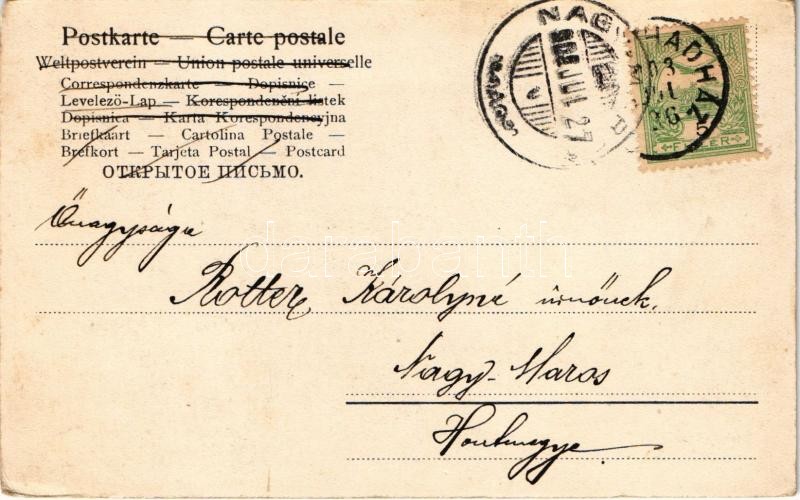 Postkarte — Carte postale
Weltpostverein — Union postale universelle
Correspondenzkarte — Dopisnice —
Levelező-Lap — Korespondenční lístek
Dopisnica — Karta Korespondencyjna
Briefkaart — Cartolina Postale —
Brefkort — Tarjeta Postal — Postcard
ОТКРЫТОЕ ПИСЬМО.
HADHÁZ
FILLÉR
Őnagysága
darabanth
Rotter Károlyné úrnőnek.
Nagy-Maros
Hontmegye